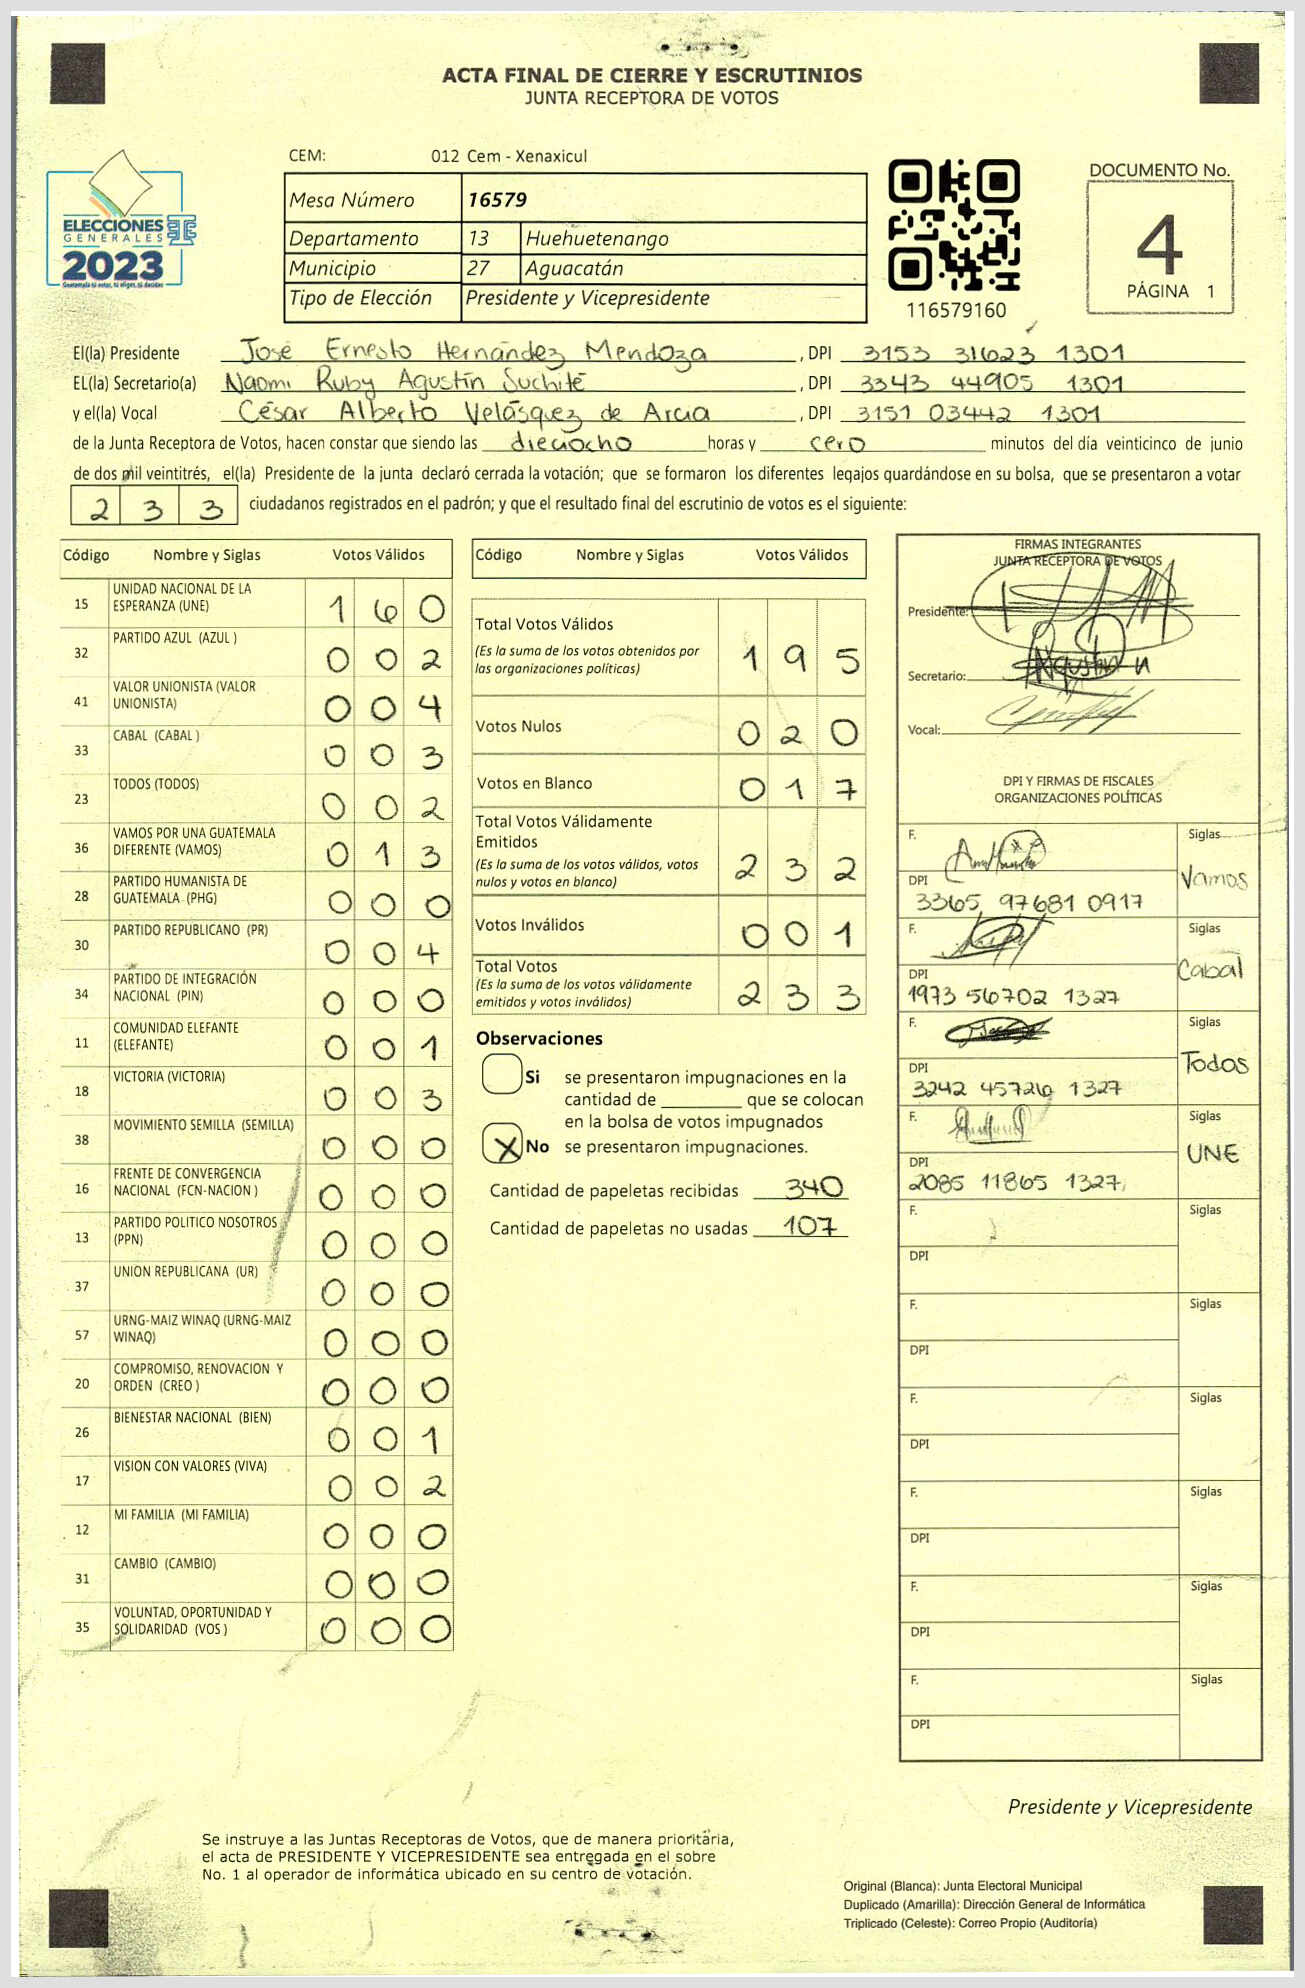 ACTA FINAL DE CIERRE Y ESCRUTINIOS
JUNTA RECEPTORA DE VOTOS
CEM: 012 Cem - Xenaxicul
ELECCIONES
GENERALES
2023
Guatemala tú votas, tú eliges, tú decides
Mesa Número 16579
Departamento 13 Huehuetenango
Municipio 27 Aguacatán
Tipo de Elección Presidente y Vicepresidente
116579160
DOCUMENTO No.
4
PÁGINA 1
El(la) Presidente José Ernesto Hernández Mendoza , DPI 3153 31623 1301
EL(la) Secretario(a) Naomi Ruby Agustín Suchité , DPI 3343 44905 1301
y el(la) Vocal César Alberto Velásquez de Arcia , DPI 3151 03442 1301
de la Junta Receptora de Votos, hacen constar que siendo las dieciocho horas y cero minutos del día veinticinco de junio
de dos mil veintitrés, el(la) Presidente de la junta declaró cerrada la votación; que se formaron los diferentes legajos guardándose en su bolsa, que se presentaron a votar
2 3 3 ciudadanos registrados en el padrón; y que el resultado final del escrutinio de votos es el siguiente:
Código Nombre y Siglas Votos Válidos
15 UNIDAD NACIONAL DE LA ESPERANZA (UNE) 1 6 0
32 PARTIDO AZUL (AZUL ) 0 0 2
41 VALOR UNIONISTA (VALOR UNIONISTA) 0 0 4
33 CABAL (CABAL ) 0 0 3
23 TODOS (TODOS) 0 0 2
36 VAMOS POR UNA GUATEMALA DIFERENTE (VAMOS) 0 1 3
28 PARTIDO HUMANISTA DE GUATEMALA (PHG) 0 0 0
30 PARTIDO REPUBLICANO (PR) 0 0 4
34 PARTIDO DE INTEGRACIÓN NACIONAL (PIN) 0 0 0
11 COMUNIDAD ELEFANTE (ELEFANTE) 0 0 1
18 VICTORIA (VICTORIA) 0 0 3
38 MOVIMIENTO SEMILLA (SEMILLA) 0 0 0
16 FRENTE DE CONVERGENCIA NACIONAL (FCN-NACION ) 0 0 0
13 PARTIDO POLITICO NOSOTROS (PPN) 0 0 0
37 UNION REPUBLICANA (UR) 0 0 0
57 URNG-MAIZ WINAQ (URNG-MAIZ WINAQ) 0 0 0
20 COMPROMISO, RENOVACION Y ORDEN (CREO ) 0 0 0
26 BIENESTAR NACIONAL (BIEN) 0 0 1
17 VISION CON VALORES (VIVA) 0 0 2
12 MI FAMILIA (MI FAMILIA) 0 0 0
31 CAMBIO (CAMBIO) 0 0 0
35 VOLUNTAD, OPORTUNIDAD Y SOLIDARIDAD (VOS ) 0 0 0
Código Nombre y Siglas Votos Válidos
Total Votos Válidos
(Es la suma de los votos obtenidos por
las organizaciones políticas) 1 9 5
Votos Nulos 0 2 0
Votos en Blanco 0 1 7
Total Votos Válidamente
Emitidos
(Es la suma de los votos válidos, votos
nulos y votos en blanco) 2 3 2
Votos Inválidos 0 0 1
Total Votos
(Es la suma de los votos válidamente
emitidos y votos inválidos) 2 3 3
Observaciones
Si se presentaron impugnaciones en la
cantidad de ________ que se colocan
en la bolsa de votos impugnados
X No se presentaron impugnaciones.
Cantidad de papeletas recibidas 340
Cantidad de papeletas no usadas 107
FIRMAS INTEGRANTES
JUNTA RECEPTORA DE VOTOS
Presidente:
Secretario:
Vocal:
DPI Y FIRMAS DE FISCALES
ORGANIZACIONES POLÍTICAS
F. Siglas
Vamos
DPI
3365 97681 0917
F. Siglas
Cabal
DPI
1973 56702 1327
F. Siglas
Todos
DPI
3242 45726 1327
F. Siglas
UNE
DPI
2085 11865 1327
F. Siglas
DPI
F. Siglas
DPI
F. Siglas
DPI
F. Siglas
DPI
F. Siglas
DPI
F. Siglas
DPI
Presidente y Vicepresidente
Se instruye a las Juntas Receptoras de Votos, que de manera prioritaria,
el acta de PRESIDENTE Y VICEPRESIDENTE sea entregada en el sobre
No. 1 al operador de informática ubicado en su centro de votación.
Original (Blanca): Junta Electoral Municipal
Duplicado (Amarilla): Dirección General de Informática
Triplicado (Celeste): Correo Propio (Auditoría)